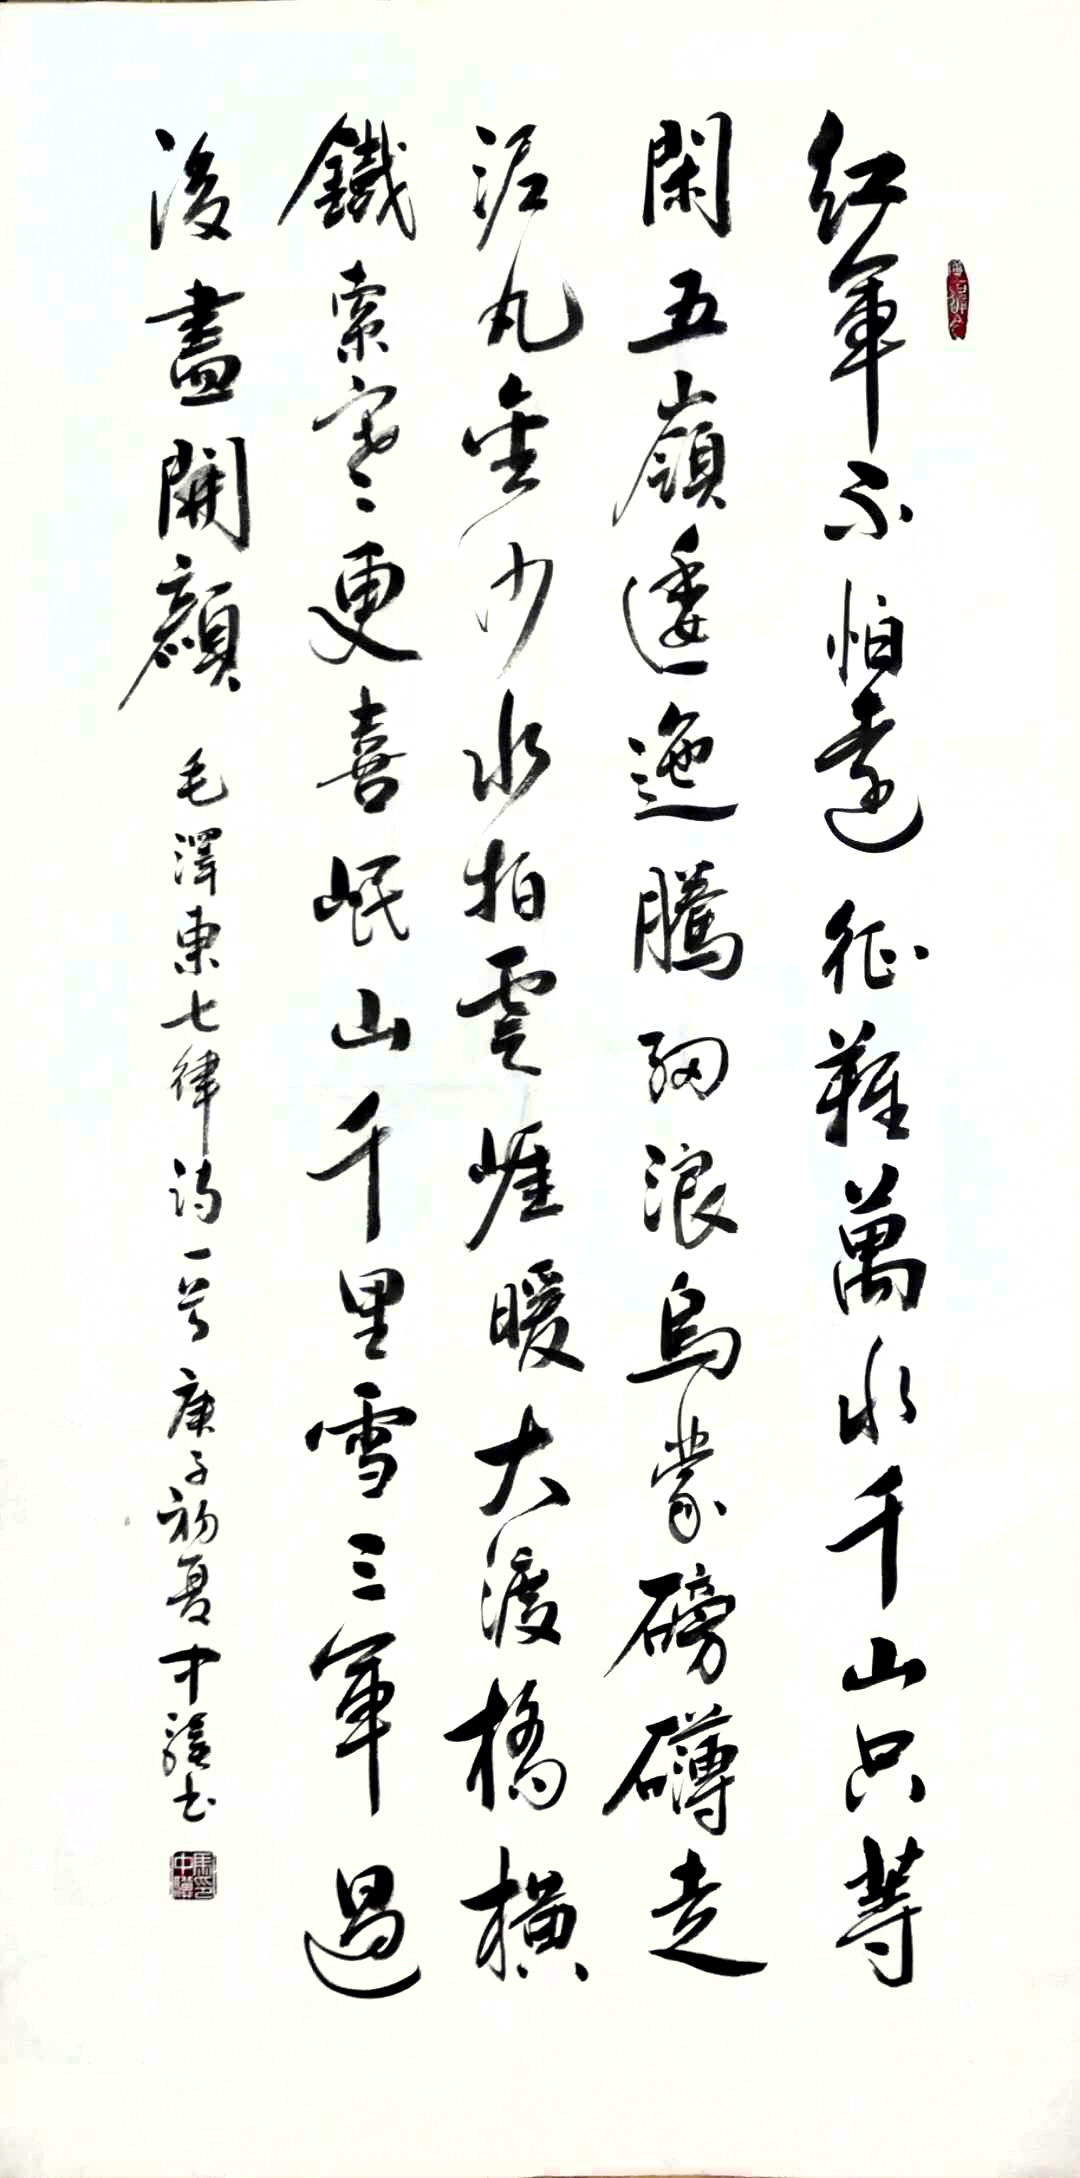 紅軍不怕遠征難萬水千山只等
閑五嶺逶迤騰細浪烏蒙磅礴走
泥丸金沙水拍雲崖暖大渡橋橫
鐵索寒更喜岷山千里雪三軍過
後盡開顏
毛澤東七律詩一首庚子初夏中驥书